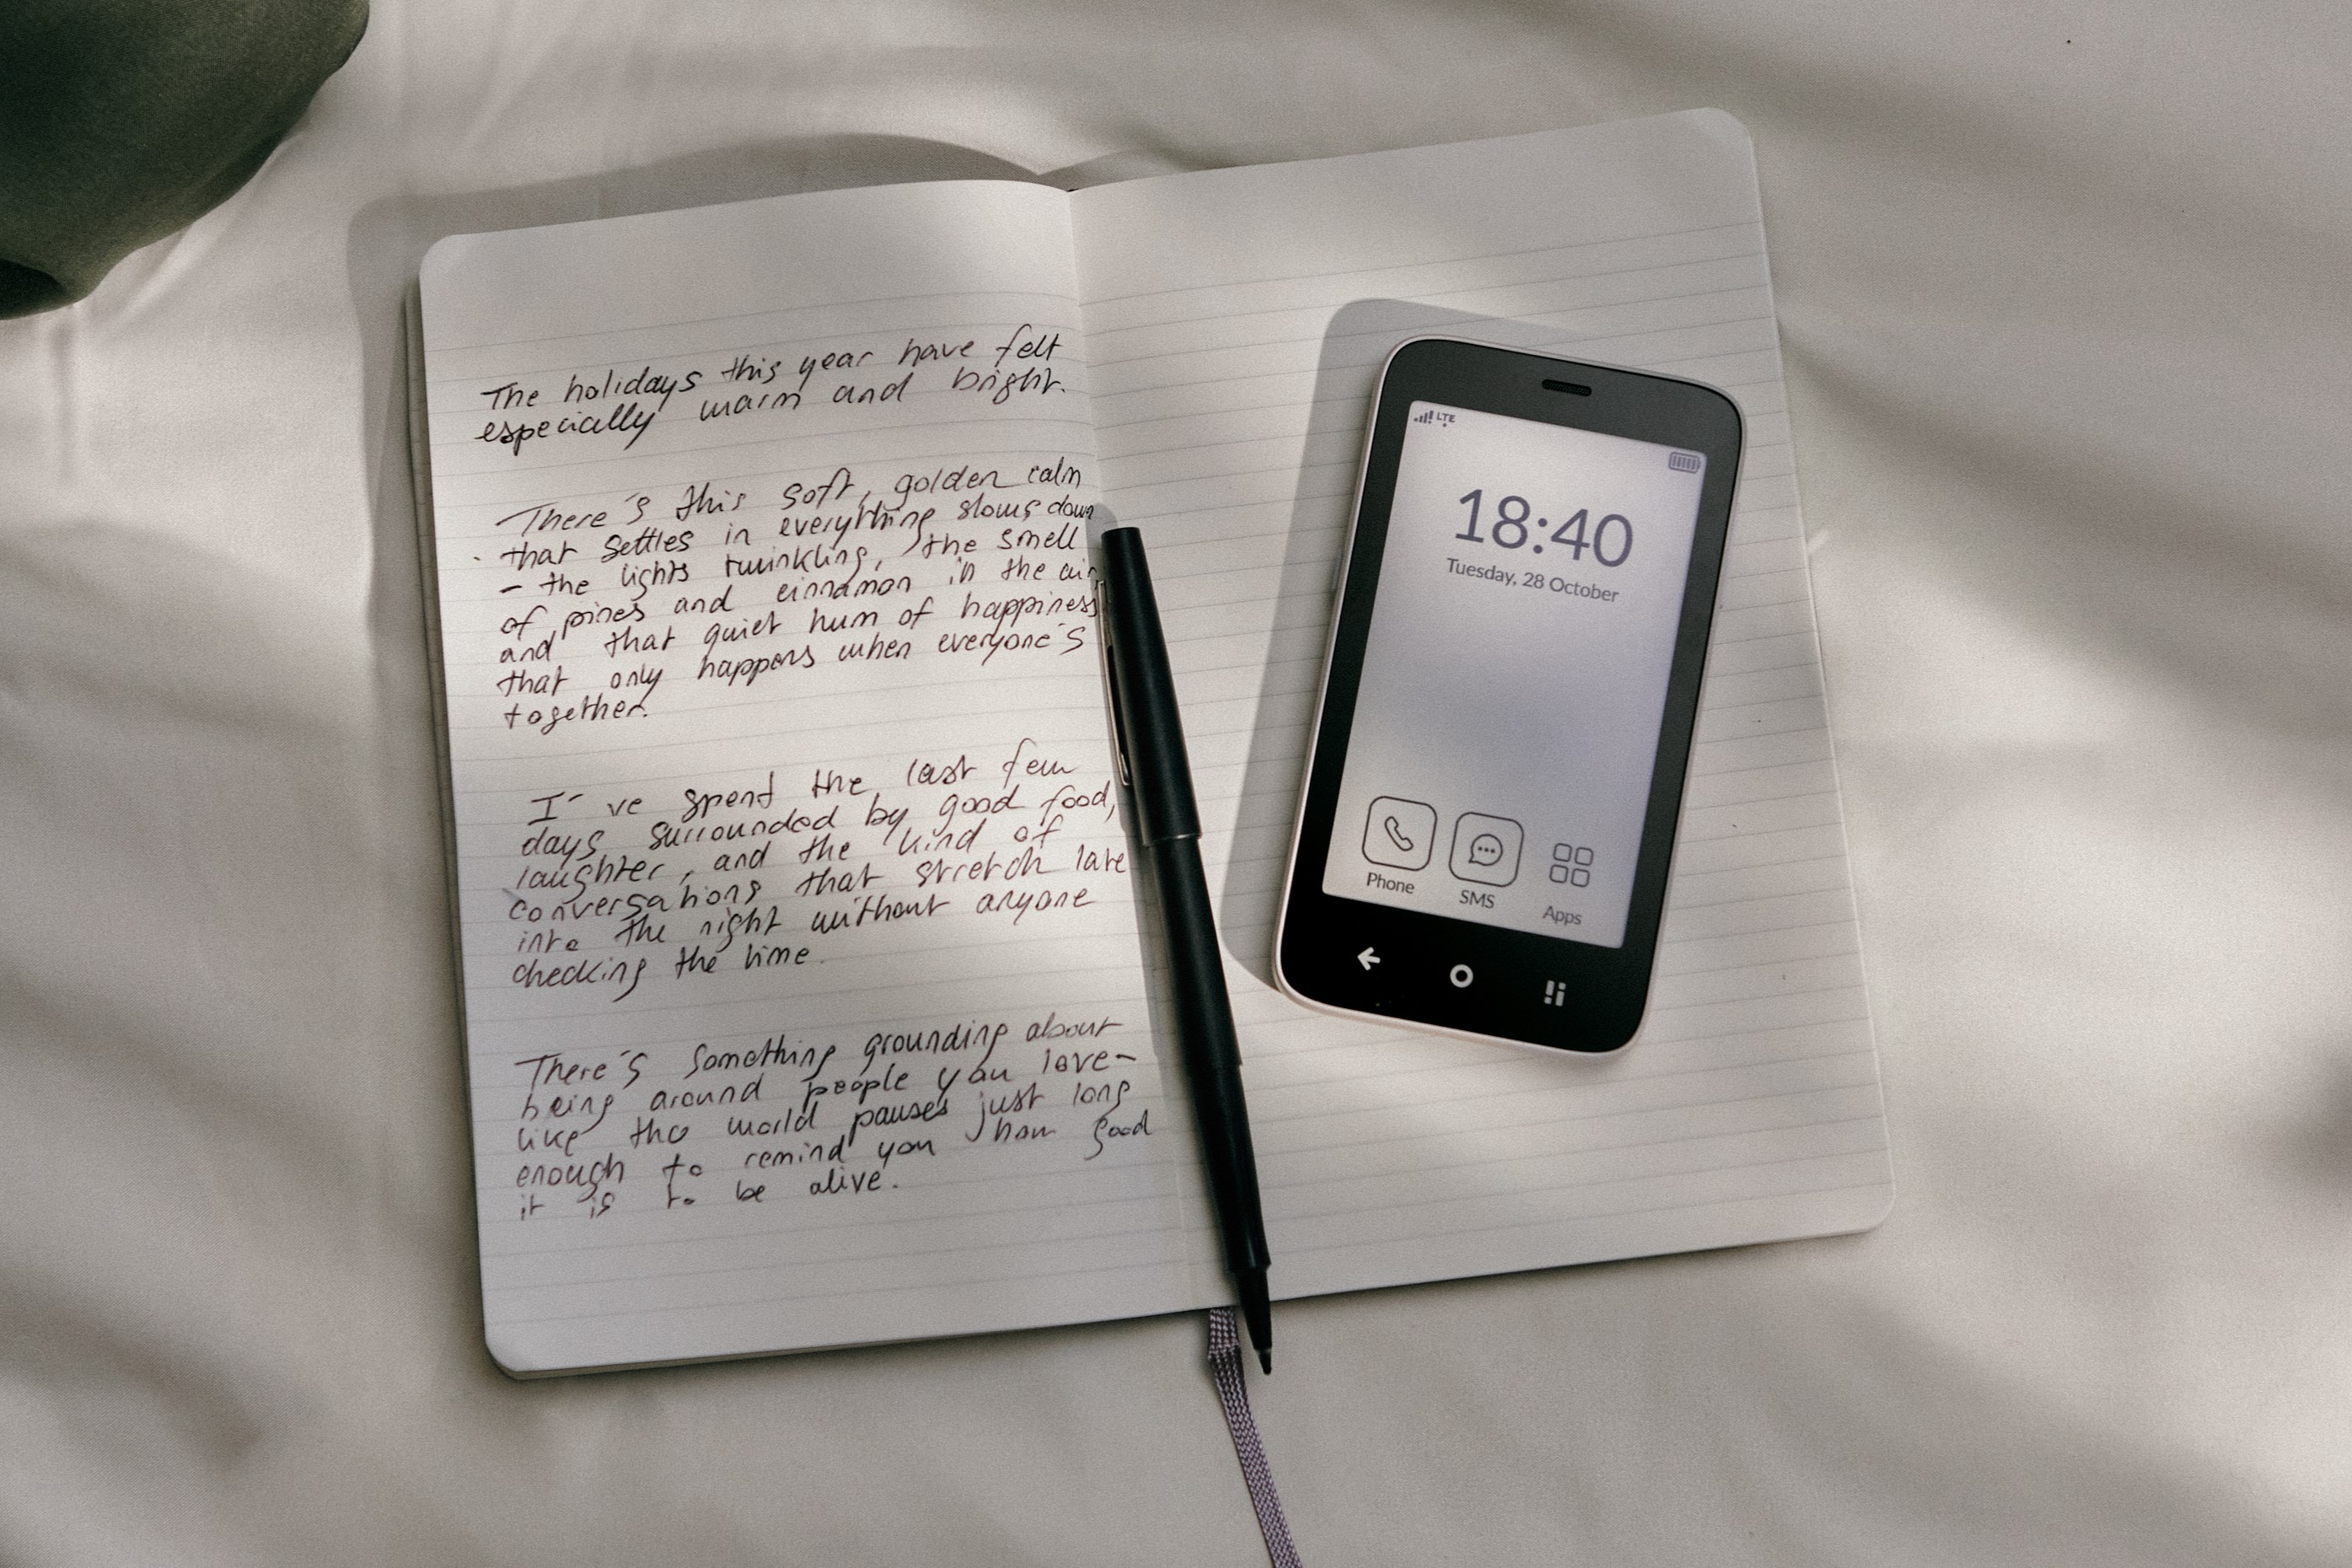 The holidays this year have felt
especially warm and bright.
There's this soft, golden calm
that settles in everything slows down
- the lights twinkling, the smell
of pines and cinnamon in the air,
and that quiet hum of happiness
that only happens when everyone's
together.
I've spent the last few
days surrounded by good food,
laughter, and the kind of
conversations that stretch late
into the night without anyone
checking the time.
There's something grounding about
being around people you love-
like the world pauses just long
enough to remind you how good
it is to be alive.
LTE
18:40
Tuesday, 28 October
Phone SMS Apps